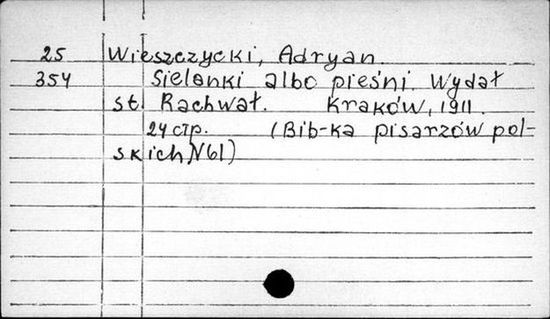 25 Wieszczycki, Adryan.
354 Sielanki albo pieśni. Wydał
st. Rachwał. Kraków, 1911.
24 стр. (Bib-ka pisarzów pol-
skich, N61)